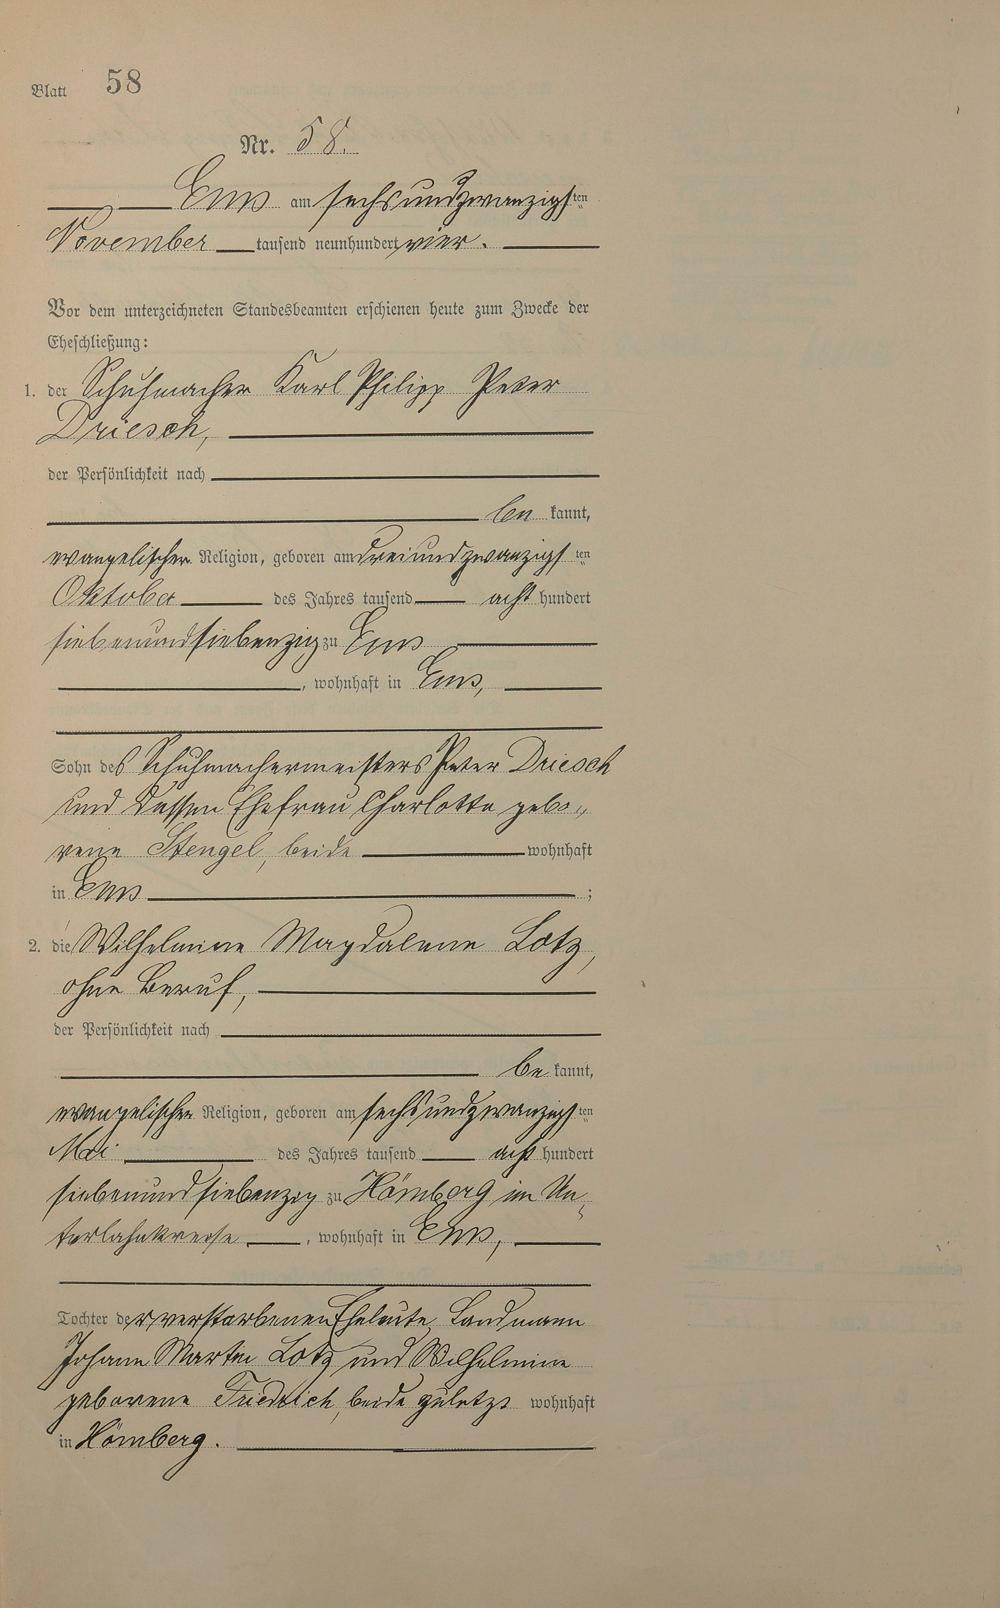 Blatt 58
Nr. 58.
Ems am sechsundzwanzigsten
November tausend neunhundert vier.
Vor dem unterzeichneten Standesbeamten erschienen heute zum Zwecke der
Eheschließung:
1. der Schuhmacher Karl Philipp Peter
Driesch,
der Persönlichkeit nach
be kannt,
evangelischer Religion, geboren am dreiundzwanzigsten
Oktober des Jahres tausend acht hundert
siebenundsiebenzig zu Ems
, wohnhaft in Ems,
Sohn des Schuhmachermeisters Peter Driesch
und dessen Ehefrau Charlotte gebo-
rene Stengel, beide wohnhaft
in Ems ;
2. die Wilhelmine Magdalena Lotz,
ohne Beruf,
der Persönlichkeit nach
be kannt,
evangelischer Religion, geboren am sechsundzwanzigsten
Mai des Jahres tausend acht hundert
siebenundsiebenzig zu Hömberg im Un-
terlahnkreise , wohnhaft in Ems,
Tochter der verstorbenen Eheleute, Landmann
Johann Martin Lotz und Wilhelmine
geborene Friedrich, beide zuletzt wohnhaft
in Hömberg.